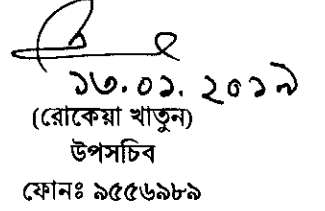 ১৩.০১.২০১৯
(রোকেয়া খাতুন)
উপসচিব
ফোনঃ ৯৫৫৬৯৮৯